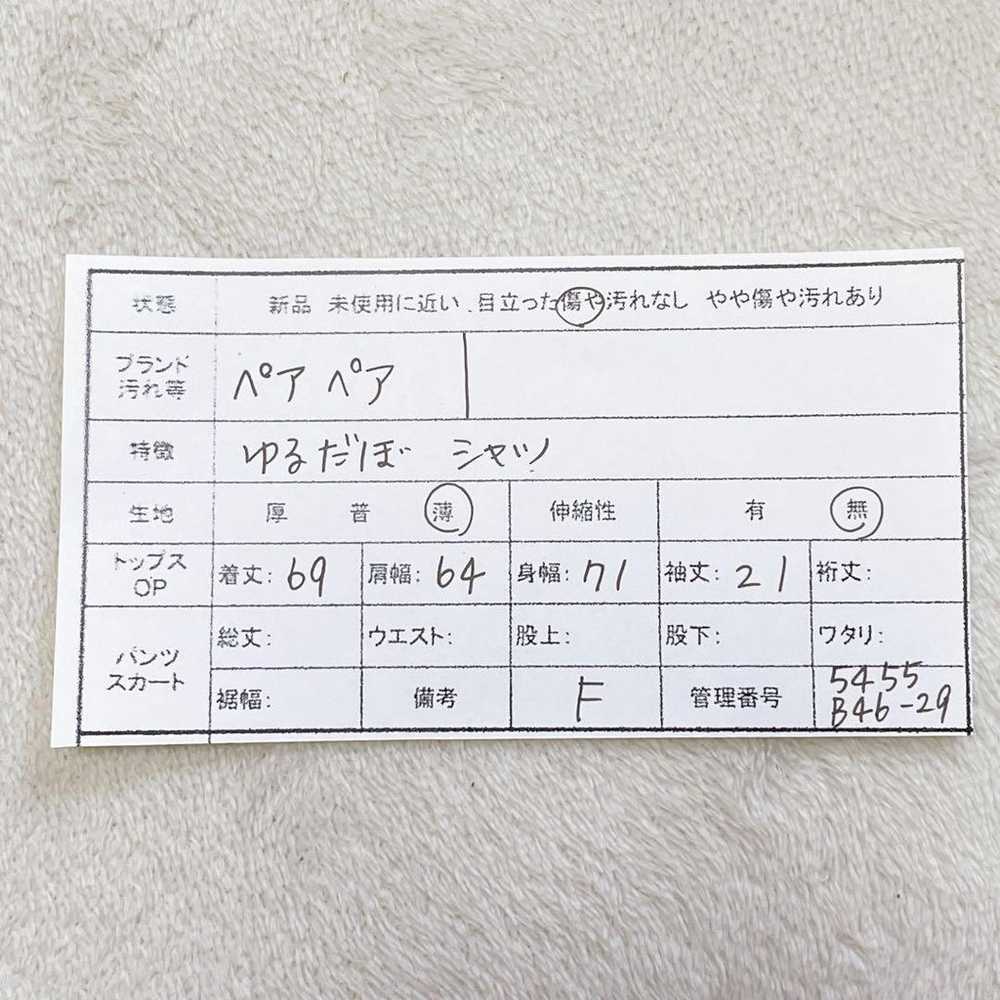 状態 新品 未使用に近い 、目立った傷や汚れなし やや傷や汚れあり
ブランド
汚れ等 ペアペア
特徴 ゆるだぼ シャツ
生地 厚 普 薄 伸縮性 有 無
トップス
OP 着丈:69 肩幅:64 身幅:71 袖丈:21 裄丈:
パンツ
スカート 総丈: ウエスト: 股上: 股下: ワタリ:
裾幅: 備考 F 管理番号 5455
B46-29